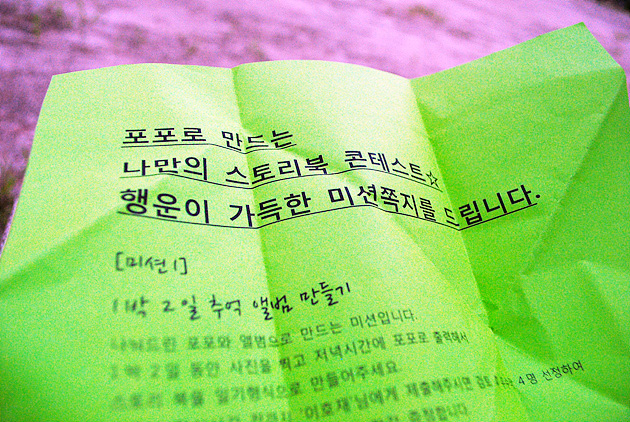 포포로 만드는
나만의 스토리북 콘테스트☆
행운이 가득한 미션쪽지를 드립니다.
[미션1]
1박 2일 추억 앨범 만들기
나눠드린 포포와 앨범으로 만드는 미션입니다.
1박 2일 동안 사진을 찍고 저녁시간에 포포로 출력해서
스토리 북을 일기형식으로 만들어주세요.
'이호재'님에게 제출해주시면 검토 4명 선정하여
증정합니다.